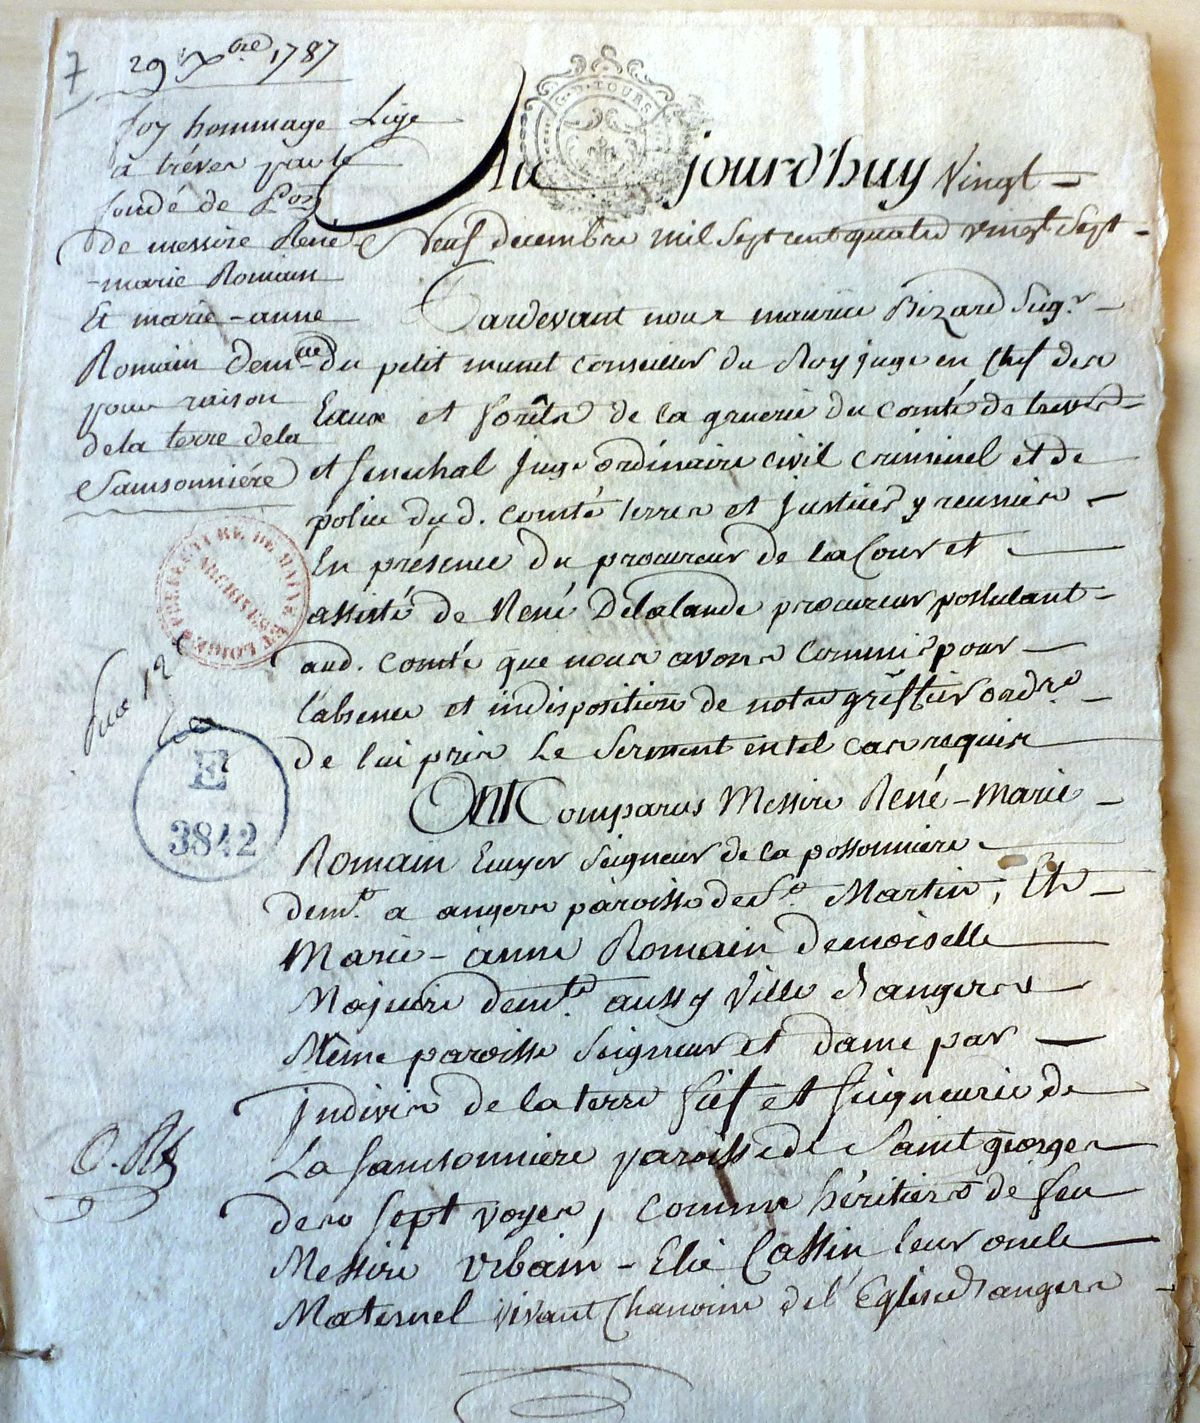 7
29 Xbre 1787
foy hommage Lige
a tréves par le
fondé de
de messire René
-marie Romain
Et marie-anne
Romain demlle
pour raison
de la terre de la
Samsonniére
G. D. TOURS
Aujourd'huy Vingt
Neuf decembre mil Sept cent quatre vingt Sept
Pardevant nous maurice Bizard Sugr
du petit munet Conseiller du Roy juge en Chef des
Eaux et forêts de la gruerie du Comté de treves
et Senechal juge ordinaire civil criminel et de
police dud. Comté terres et justices y reunies
En présence du procureur de la Cour et
assisté de René Delalande procureur postulant
aud. Comté que nous avons Commis pour
l'absence et indisposition de notre greffier ordre
de lui pris Le Serment en tel cas requis
Ont Comparus Messire René-Marie
Romain Ecuyer Seigneur de la possonniere
demt a angers paroisse de St Martin, Et
Marie-anne Romain demoiselle
Majeure demte aussy Ville d'angers
Même paroisse Seigneur et dame par
indivis de la terre fief et Seigneurie de
La Samsonniere paroisse de Saint georges
des Sept voyes, comme héritiers de feu
Messire Urbain-Elie Cassin leur oncle
Maternel vivant Chanoine de l'Eglise d'angers
PRÉFECTURE DE MAINE ET LOIRE
ARCHIVES
E
3842